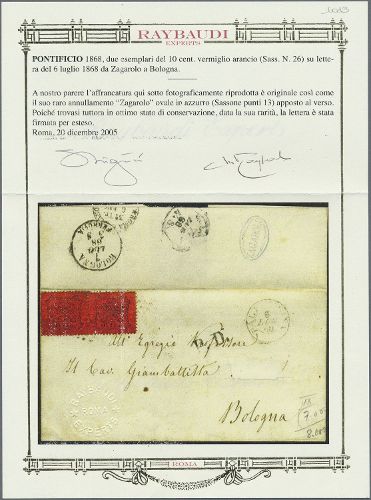 RAYBAUDI
EXPERTS
PONTIFICIO 1868, due esemplari del 10 cent. vermiglio arancio (Sass. N. 26) su lette-
ra del 6 luglio 1868 da Zagarolo a Bologna.
A nostro parere l'affrancatura qui sotto fotograficamente riprodotta è originale così come
il suo raro annullamento "Zagarolo" ovale in azzurro (Sassone punti 13) apposto al verso.
Poiché trovasi tuttora in ottimo stato di conservazione, data la sua rarità, la lettera è stata
firmata per esteso.
Roma, 20 dicembre 2005
BOLOGNA
P.D.
All' Egregio Professore
Il Cav. Giambattista
Bologna
RAYBAUDI
ROMA
EXPERTS
ROMA